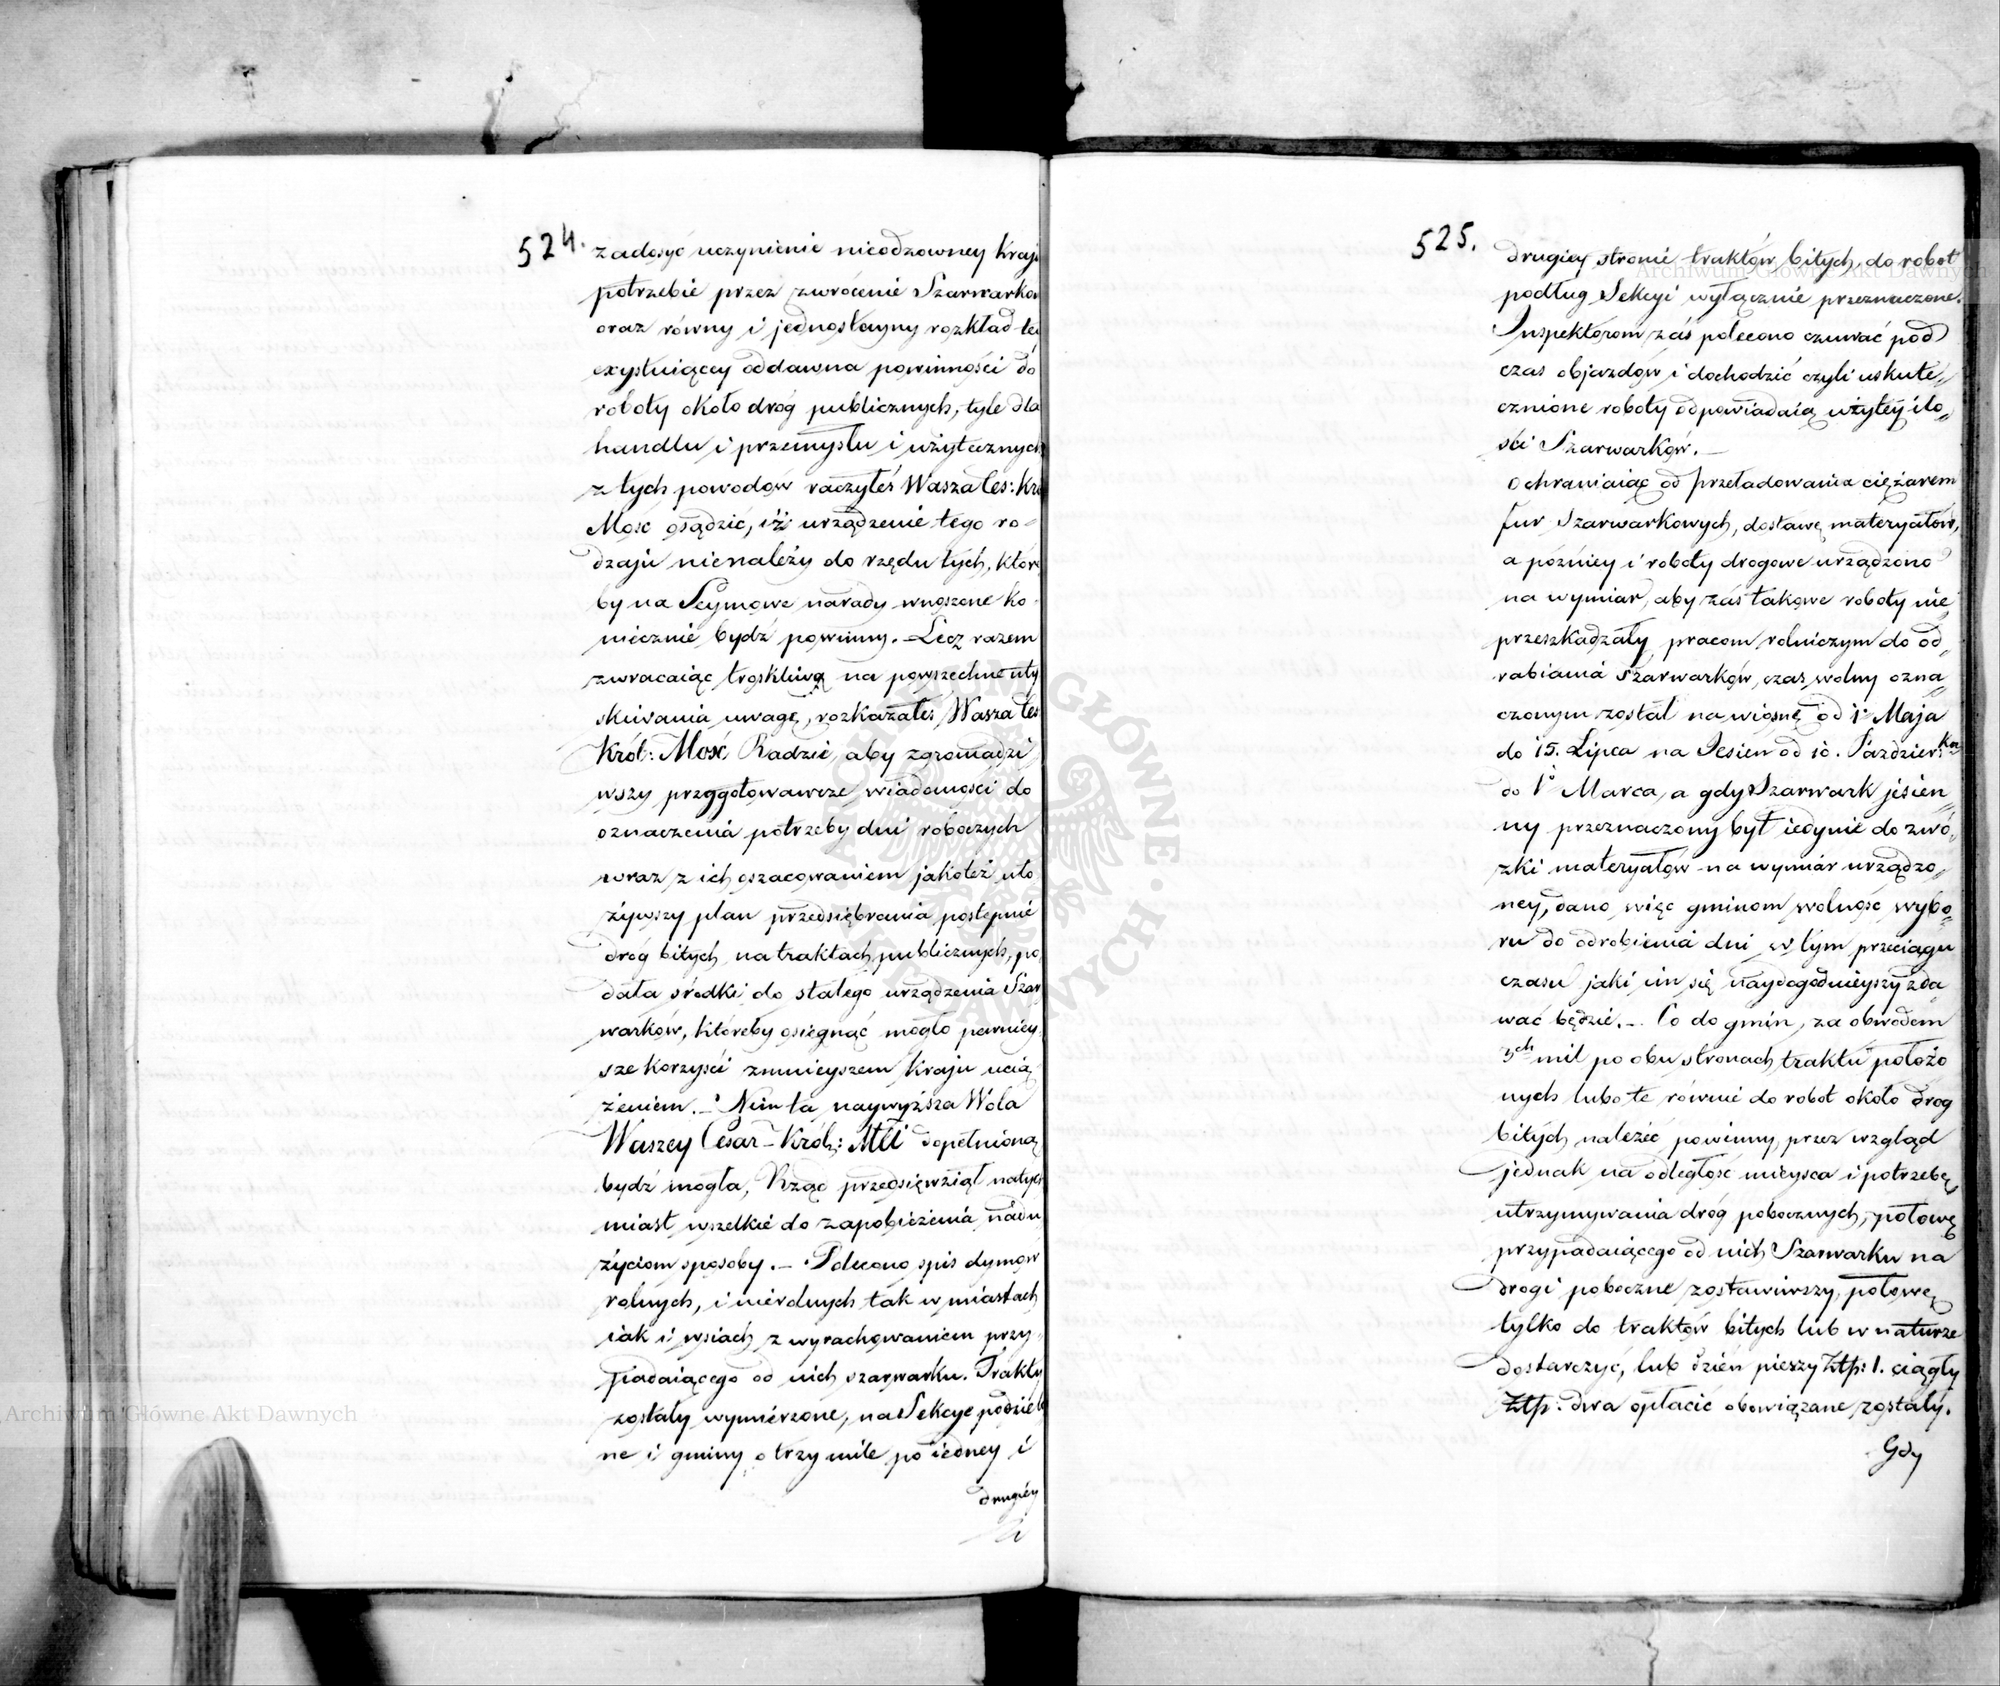 524.
zadosyć uczynienie nieodzowney kraju
potrzebie przez zwrócenie Szarwarków
oraz równy i jednostayny rozkład tey
exystuiącey oddawna powinności do
roboty około dróg publicznych, tyle dla
handlu i przemysłu i użytecznych
z tych powodów raczyłeś Wasza Ces: Kró
Mość osądzić, iż urządzenie tego ro-
dzaju nienależy do rzędu tych, które
by na Seymowe narady wnoszone ko-
niecznie bydź powinny. – Lecz razem
zwracaiąc troskliwą na powszechne uty
skiwania uwagę, rozkazałeś Wasza Ces
Król: Mość Radzie, aby zgromadzi
wszy przygotowawcze wiadomości do
oznaczenia potrzeby dni roboczych
wraz z ich oszacowaniem jakoteż uło
żywszy plan przedsiębrania postępnie
dróg bitych na traktach publicznych, po
dała środki do stałego urządzenia Szar
warków, któreby osięgnąć mogło pewniey
sze korzyści zmnieyszem kraju ucią
żeniem. – Nim ta naywyższa Wola
Waszey Cesar- Król: Mći dopełnioną
bydź mogła, Rząd przedsięwziął natych
miast wszelkie do zapobieżenia nadu
życiom sposoby. – Polecono spis dymów
rolnych, i nierolnych tak w miastach
iak i wsiach z wyrachowaniem przy-
padaiącego od nich szarwarku. Trakty
zostały wymierzone, na Sekcye podzielo
ne i gminy o trzy mile po iedney i
drugiéy
525.
drugiey stronie traktów bitych, do robot
podług Sekcyi wyłącznie przeznaczone.
Inspektorom zaś polecono czuwać pod
czas objazdów i dochodzić czyli uskute„
cznione roboty odpowiadaią użytéy ilo„
ści Szarwarków. –
Ochraniaiąc od przeładowania ciężarem
fur Szarwarkowych, dostawę materyałów,
a późniey i roboty drogowe urządzono
na wymiar, aby zaś takowe roboty nie
przeszkadzały pracom rolniczym do od„
rabiania Szarwarków, czas wolny ozna„
czonym został na wiosnę od 1º Maja
do 15. Lipca na Jesień od 10. Paździer:ka
do 1º Marca, a gdy Szarwark jesien„
ny przeznaczony był iedynie do zwó„
zki materyałów na wymiar urządzo„
ney, dano więc gminom wolność wybo„
ru do odrobienia dni w tym przeciągu
czasu jaki im się naydogodnieyszy zda
wać będzie. – Co do gmin, za obwodem
3ch mil po obu stronach traktu położo
nych lubo te równie do robot około dróg
bitych należeć powinny, przez wzgląd
jednak na odległość mieysca i potrzebę
utrzymywania dróg pobocznych, połowę
przypadaiącego od nich Szarwarku na
drogi poboczne zostawiwszy, połowę
tylko do traktów bitych lub w naturze
dostarczyć, lub dzień pieszy Złp: 1. ciągły
Złp: dwa opłacić obowiązane zostały.
Gdy
Archiwum Główne Akt Dawnych
Archiwum Główne Akt Dawnych
ARCHIWUM GŁÓWNE AKT DAWNYCH